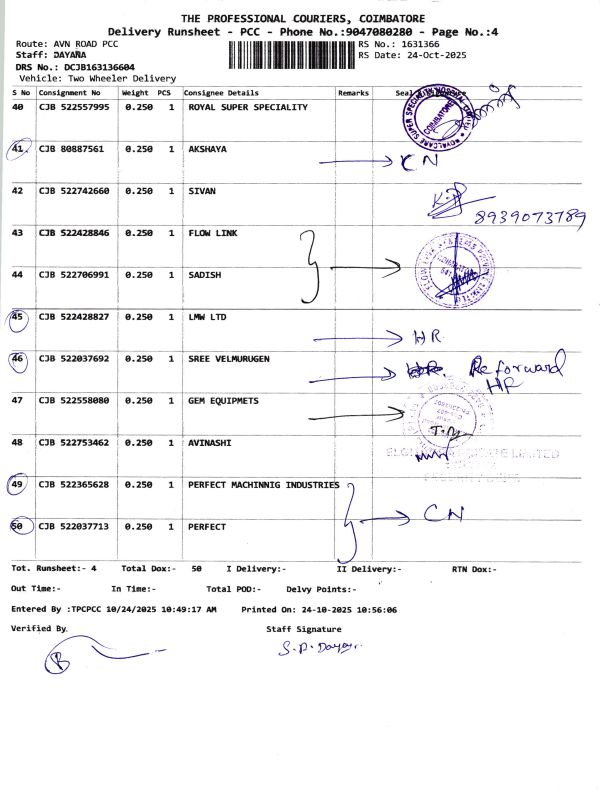 THE PROFESSIONAL COURIERS, COIMBATORE
Delivery Runsheet - PCC - Phone No.:9047080280 - Page No.:4
Route: AVN ROAD PCC RS No.: 1631366
Staff: DAYAÑA RS Date: 24-Oct-2025
DRS No.: DCJB163136604
Vehicle: Two Wheeler Delivery
S No Consignment No Weight PCS Consignee Details Remarks Seal
40 CJB 522557995 0.250 1 ROYAL SUPER SPECIALITY COIMBATORE
41 CJB 80887561 0.250 1 AKSHAYA CN
42 CJB 522742660 0.250 1 SIVAN 8939073789
43 CJB 522428846 0.250 1 FLOW LINK
44 CJB 522706991 0.250 1 SADISH
45 CJB 522428827 0.250 1 LMW LTD HR
46 CJB 522037692 0.250 1 SREE VELMURUGEN Reforward HR
47 CJB 522558080 0.250 1 GEM EQUIPMETS
48 CJB 522753462 0.250 1 AVINASHI LIMITED
49 CJB 522365628 0.250 1 PERFECT MACHINNIG INDUSTRIES CN
50 CJB 522037713 0.250 1 PERFECT
Tot. Runsheet:- 4 Total Dox:- 50 I Delivery:- II Delivery:- RTN Dox:-
Out Time:- In Time:- Total POD:- Delvy Points:-
Entered By :TPCPCC 10/24/2025 10:49:17 AM Printed On: 24-10-2025 10:56:06
Verified By. Staff Signature
S.P. Daya